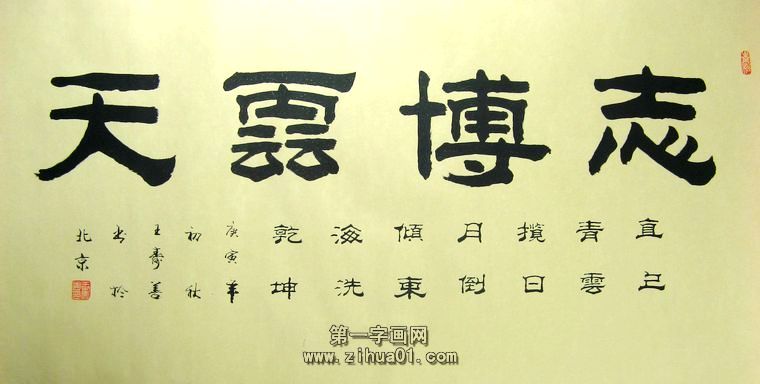 志博雲天
直上
青雲
攬日
月倒
傾東
海洗
乾坤
庚寅年
初秋
王壽善
书於
北京
第一字画网
www.zihua01.com